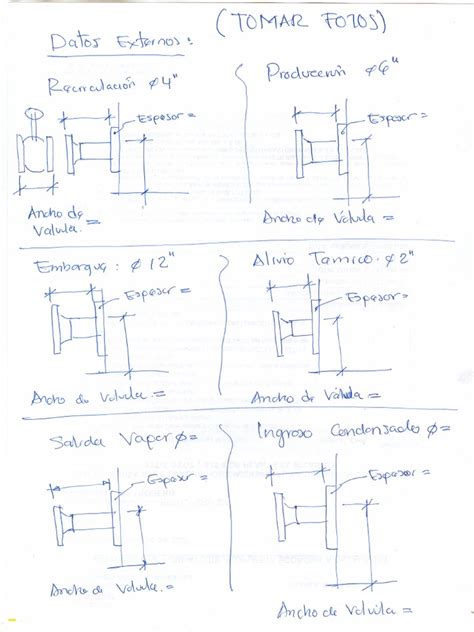 (TOMAR FOTOS)
Datos Externos:
Recirculación ø4"
Espesor =
Ancho de
Valvula. =
Producción ø6"
Espesor =
Ancho de Válvula =
Embarque: ø12"
Espesor =
Ancho de Valvula. =
Alivio Tamico. ø2"
Espesor =
Ancho de Válvula =
Salida Vapor ø=
Espesor =
Ancho de Valvula. =
Ingreso Condensado ø=
Espesor =
Ancho de Valvula =